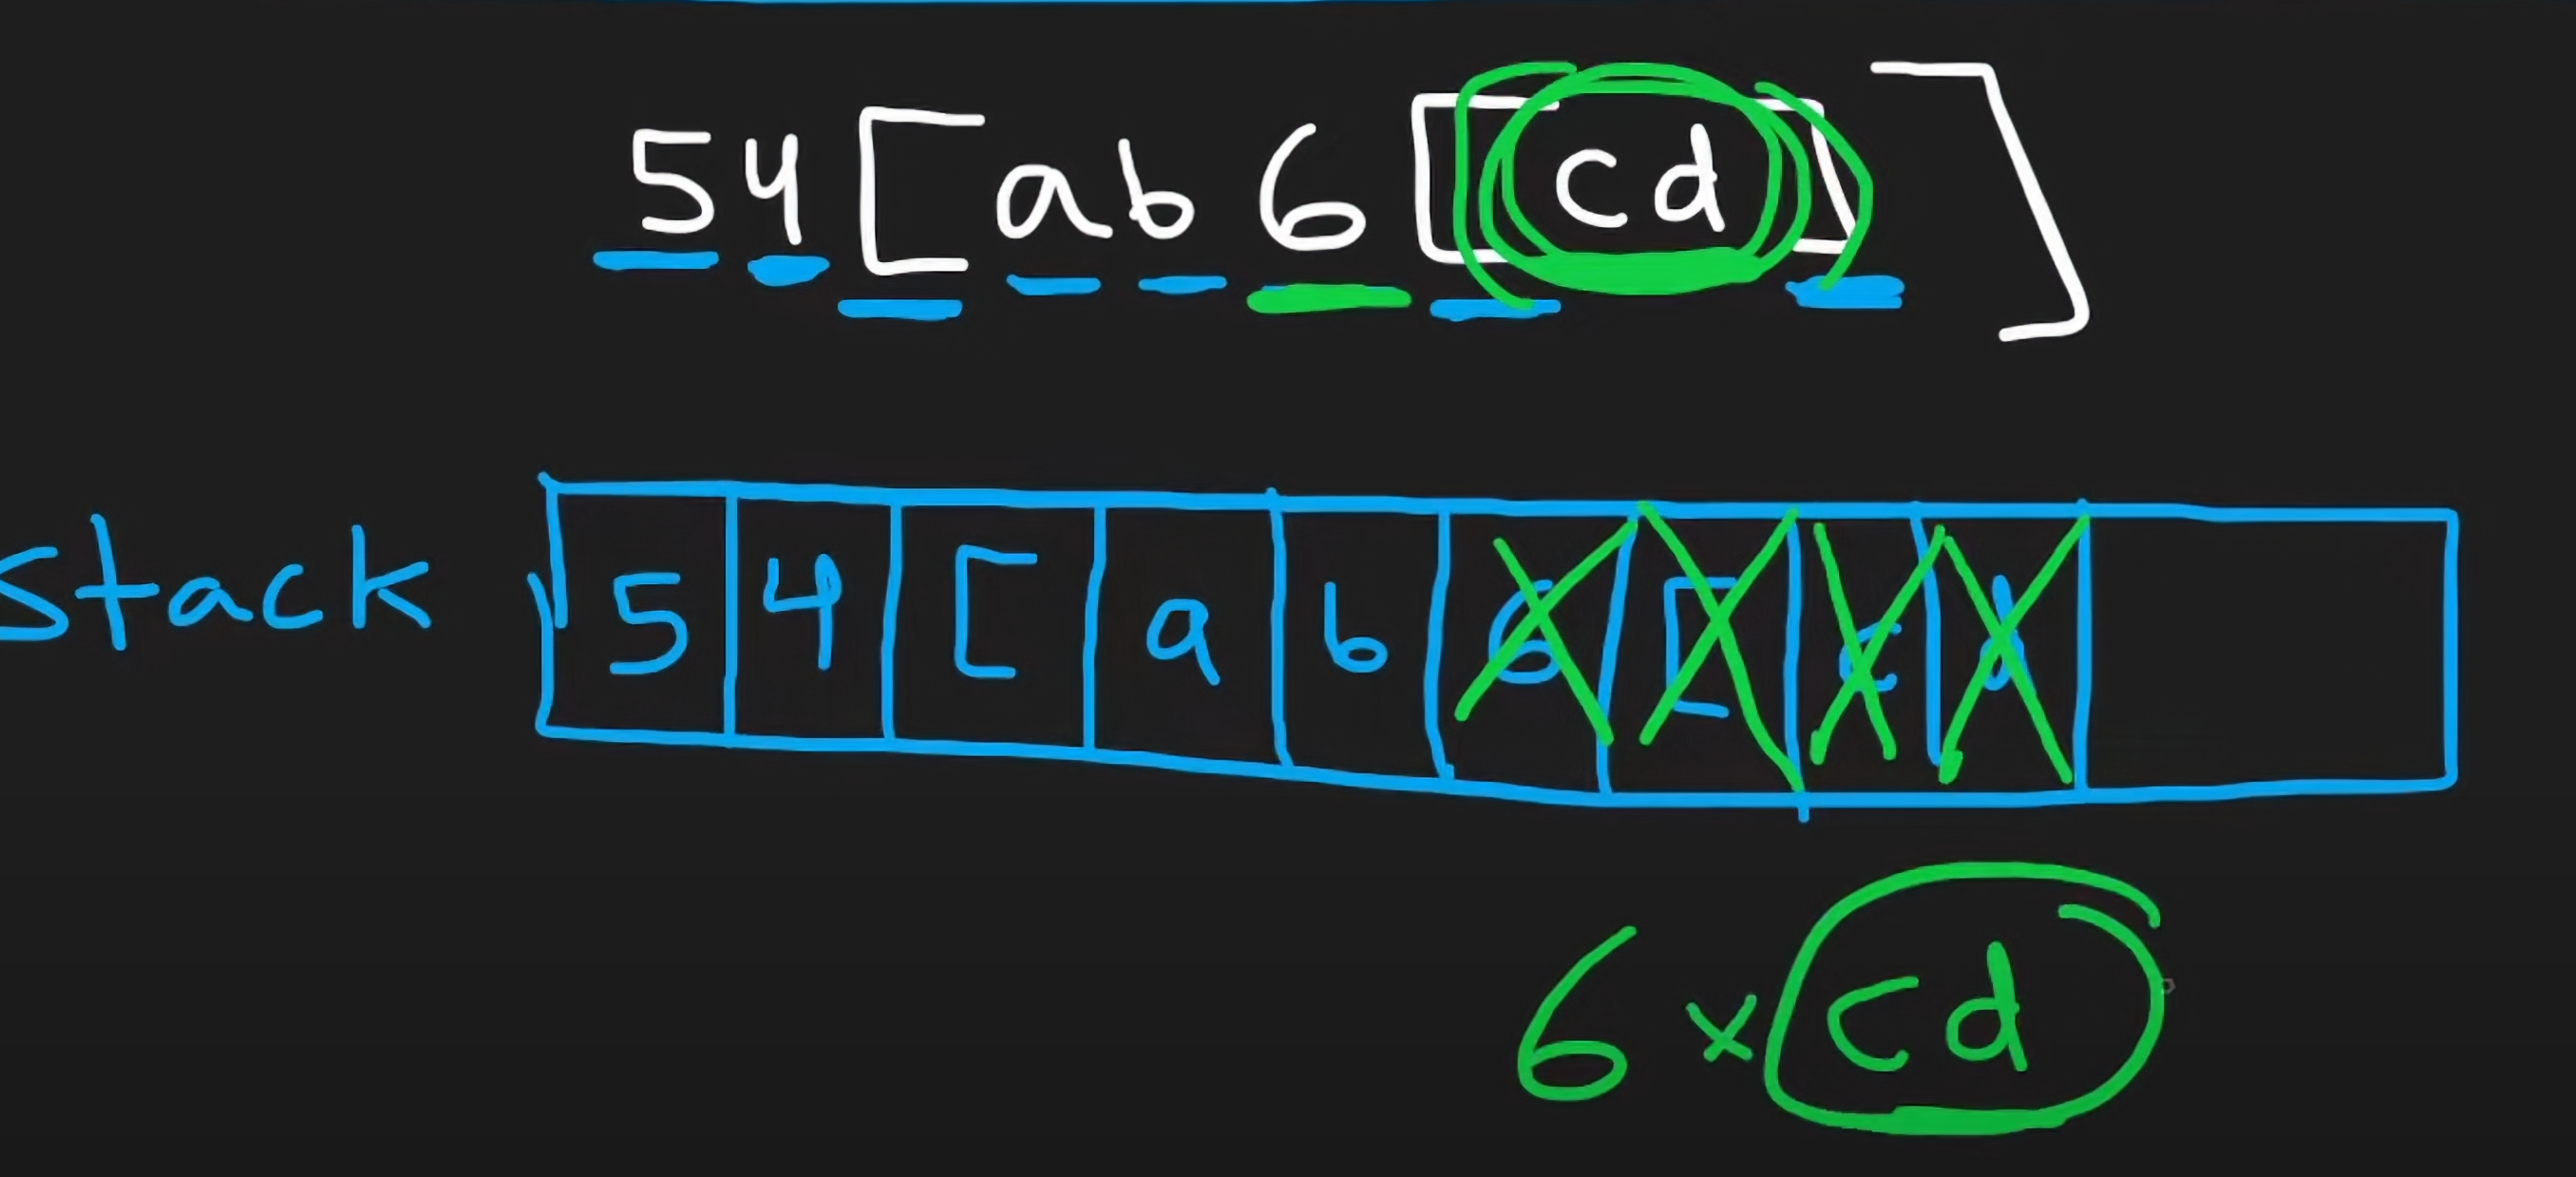 54[ab6[cd]]
stack 5 4 [ a b 6 [ c d
6 × cd